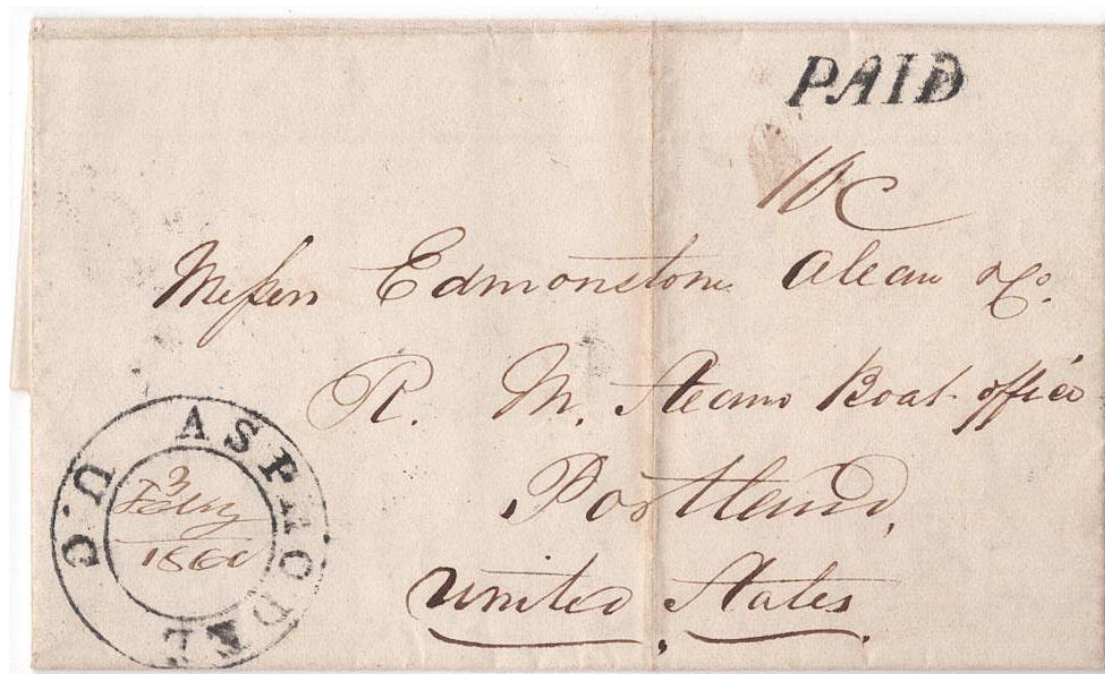 PAID
10c
Messrs Edmonstone Allan & Co.
R. M. Steam Boat office
Portland,
United States
ASPHODEL U.C
3
Feby
1860